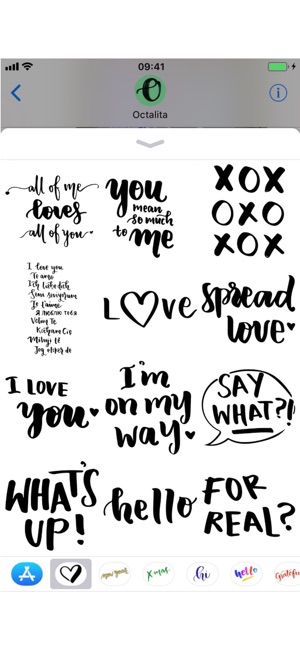 09:41
Octalita
all of me
loves
all of you
you
mean
so much
to me
XOX
OXO
XOX
I love you
Te amo
Ich liebe dich
Seni seviyorum
Je t'aime
Я люблю тебя
Volim Te
Kocham Cię
Miluji tě
Jeg elsker de
LOVE
spread
love
I LOVE
you
I'm
on my
way
SAY
WHAT?!
WHAT'S
UP!
hello
FOR
REAL?
Xmas
Hi
hello